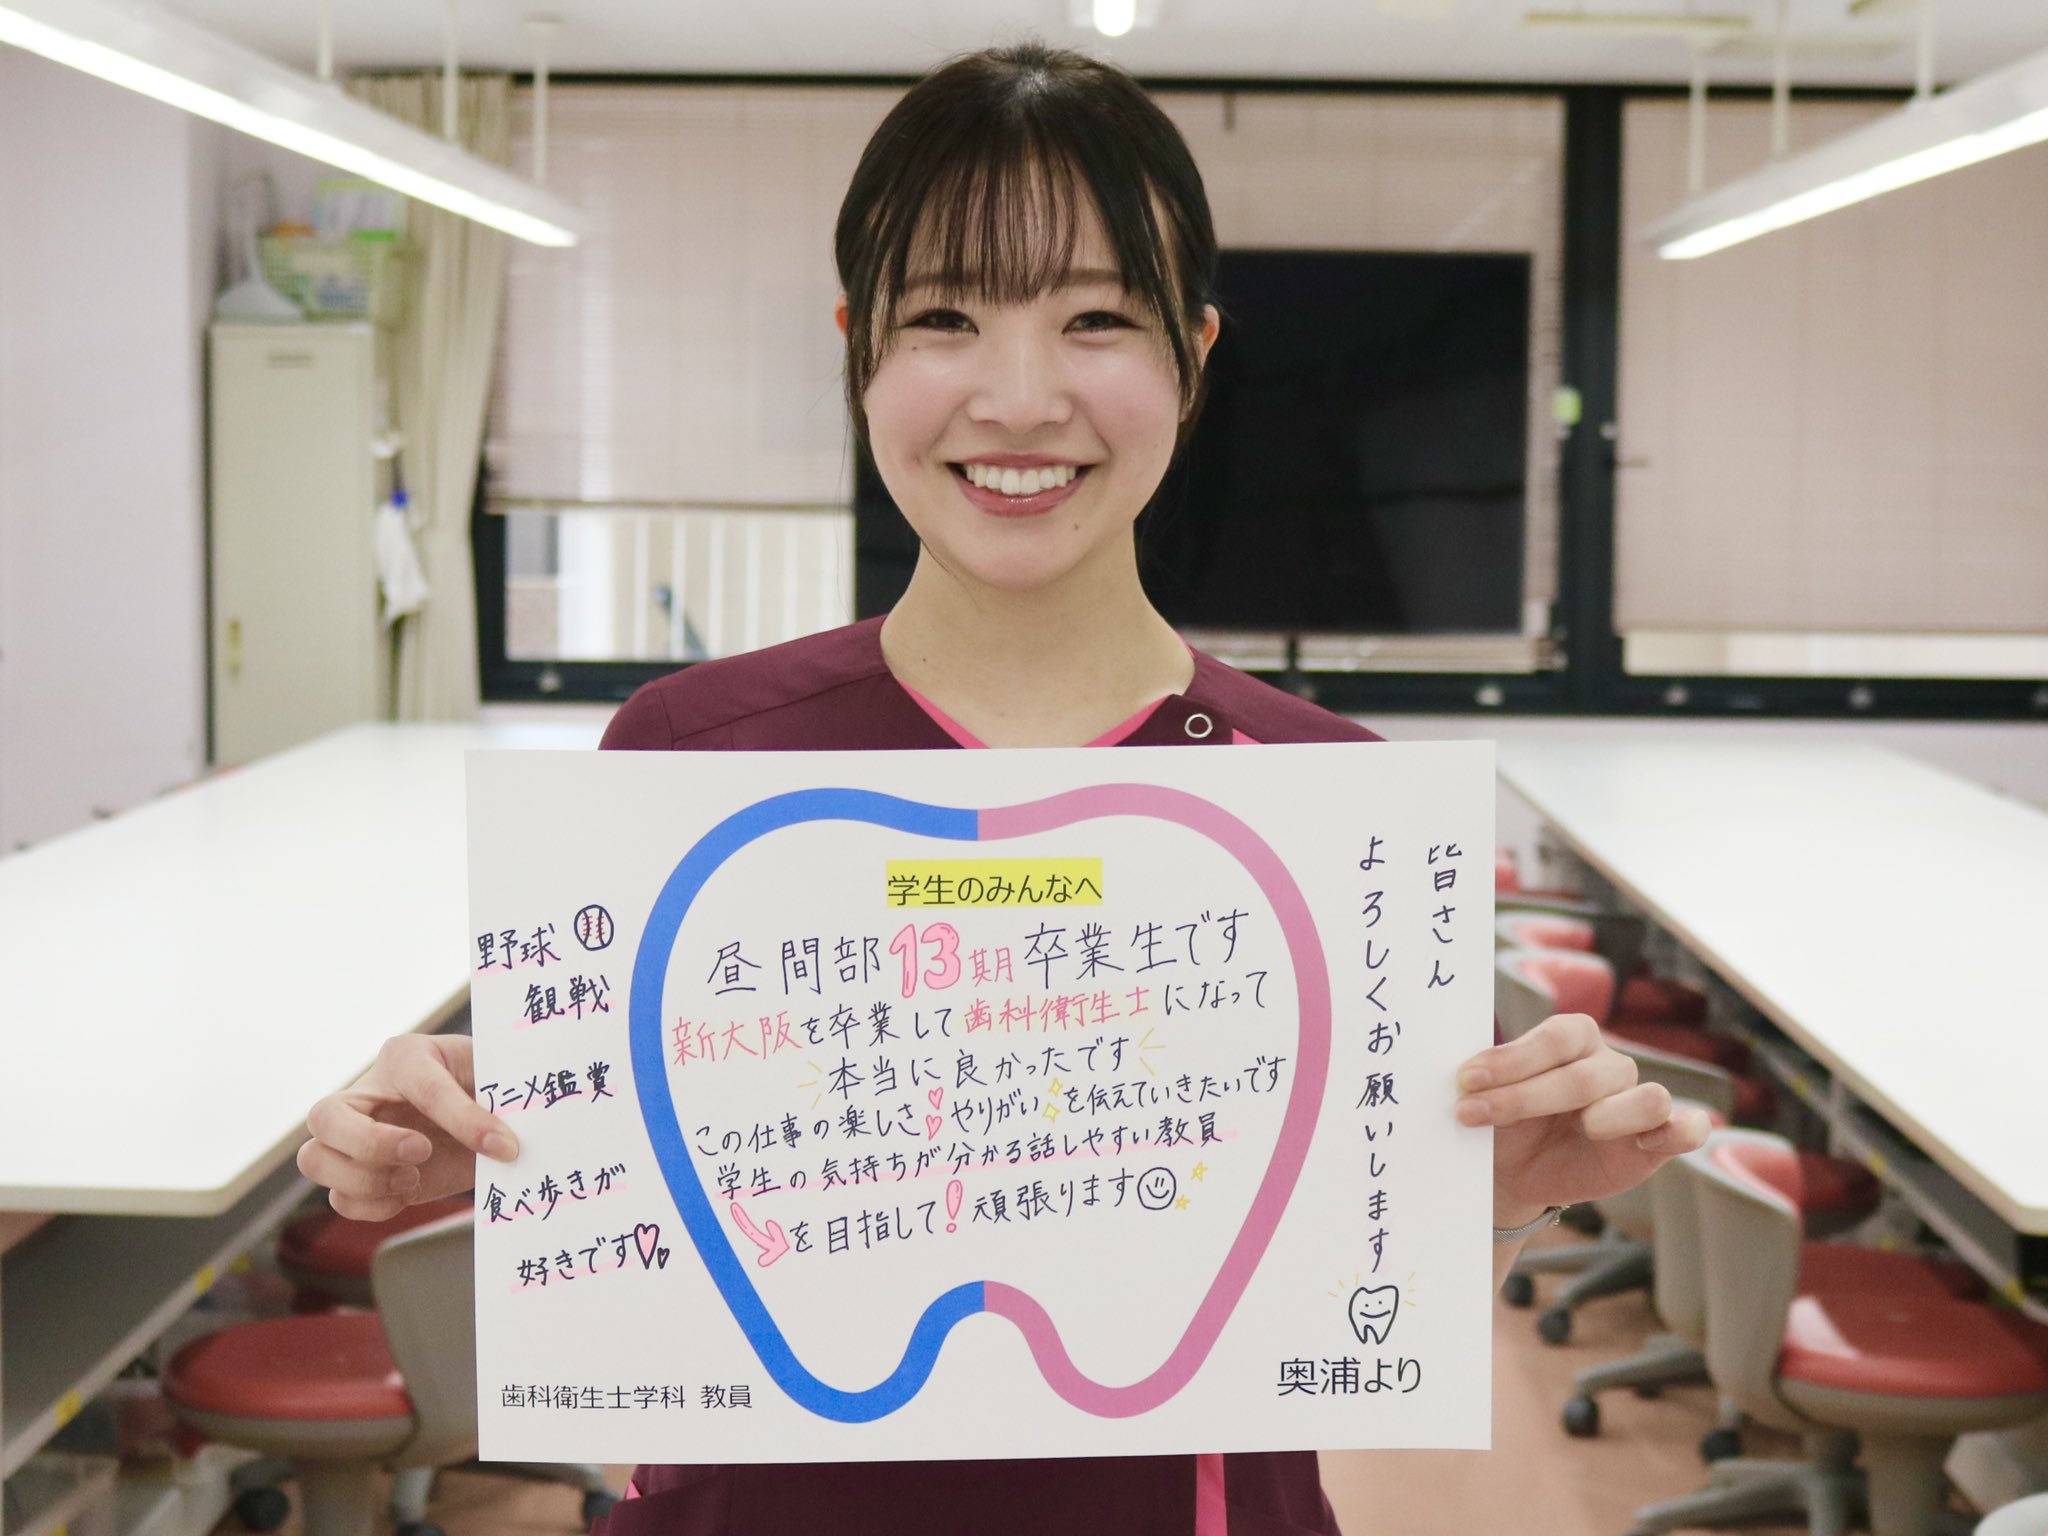 学生のみんなへ
昼間部13期卒業生です
新大阪を卒業して歯科衛生士になって
本当に良かったです
この仕事の楽しさやりがいを伝えていきたいです
学生の気持ちが分かる話しやすい教員
を目指して!頑張ります
野球
観戦
アニメ鑑賞
食べ歩きが
好きです
皆さん
よろしくお願いします
奥浦より
歯科衛生士学科 教員